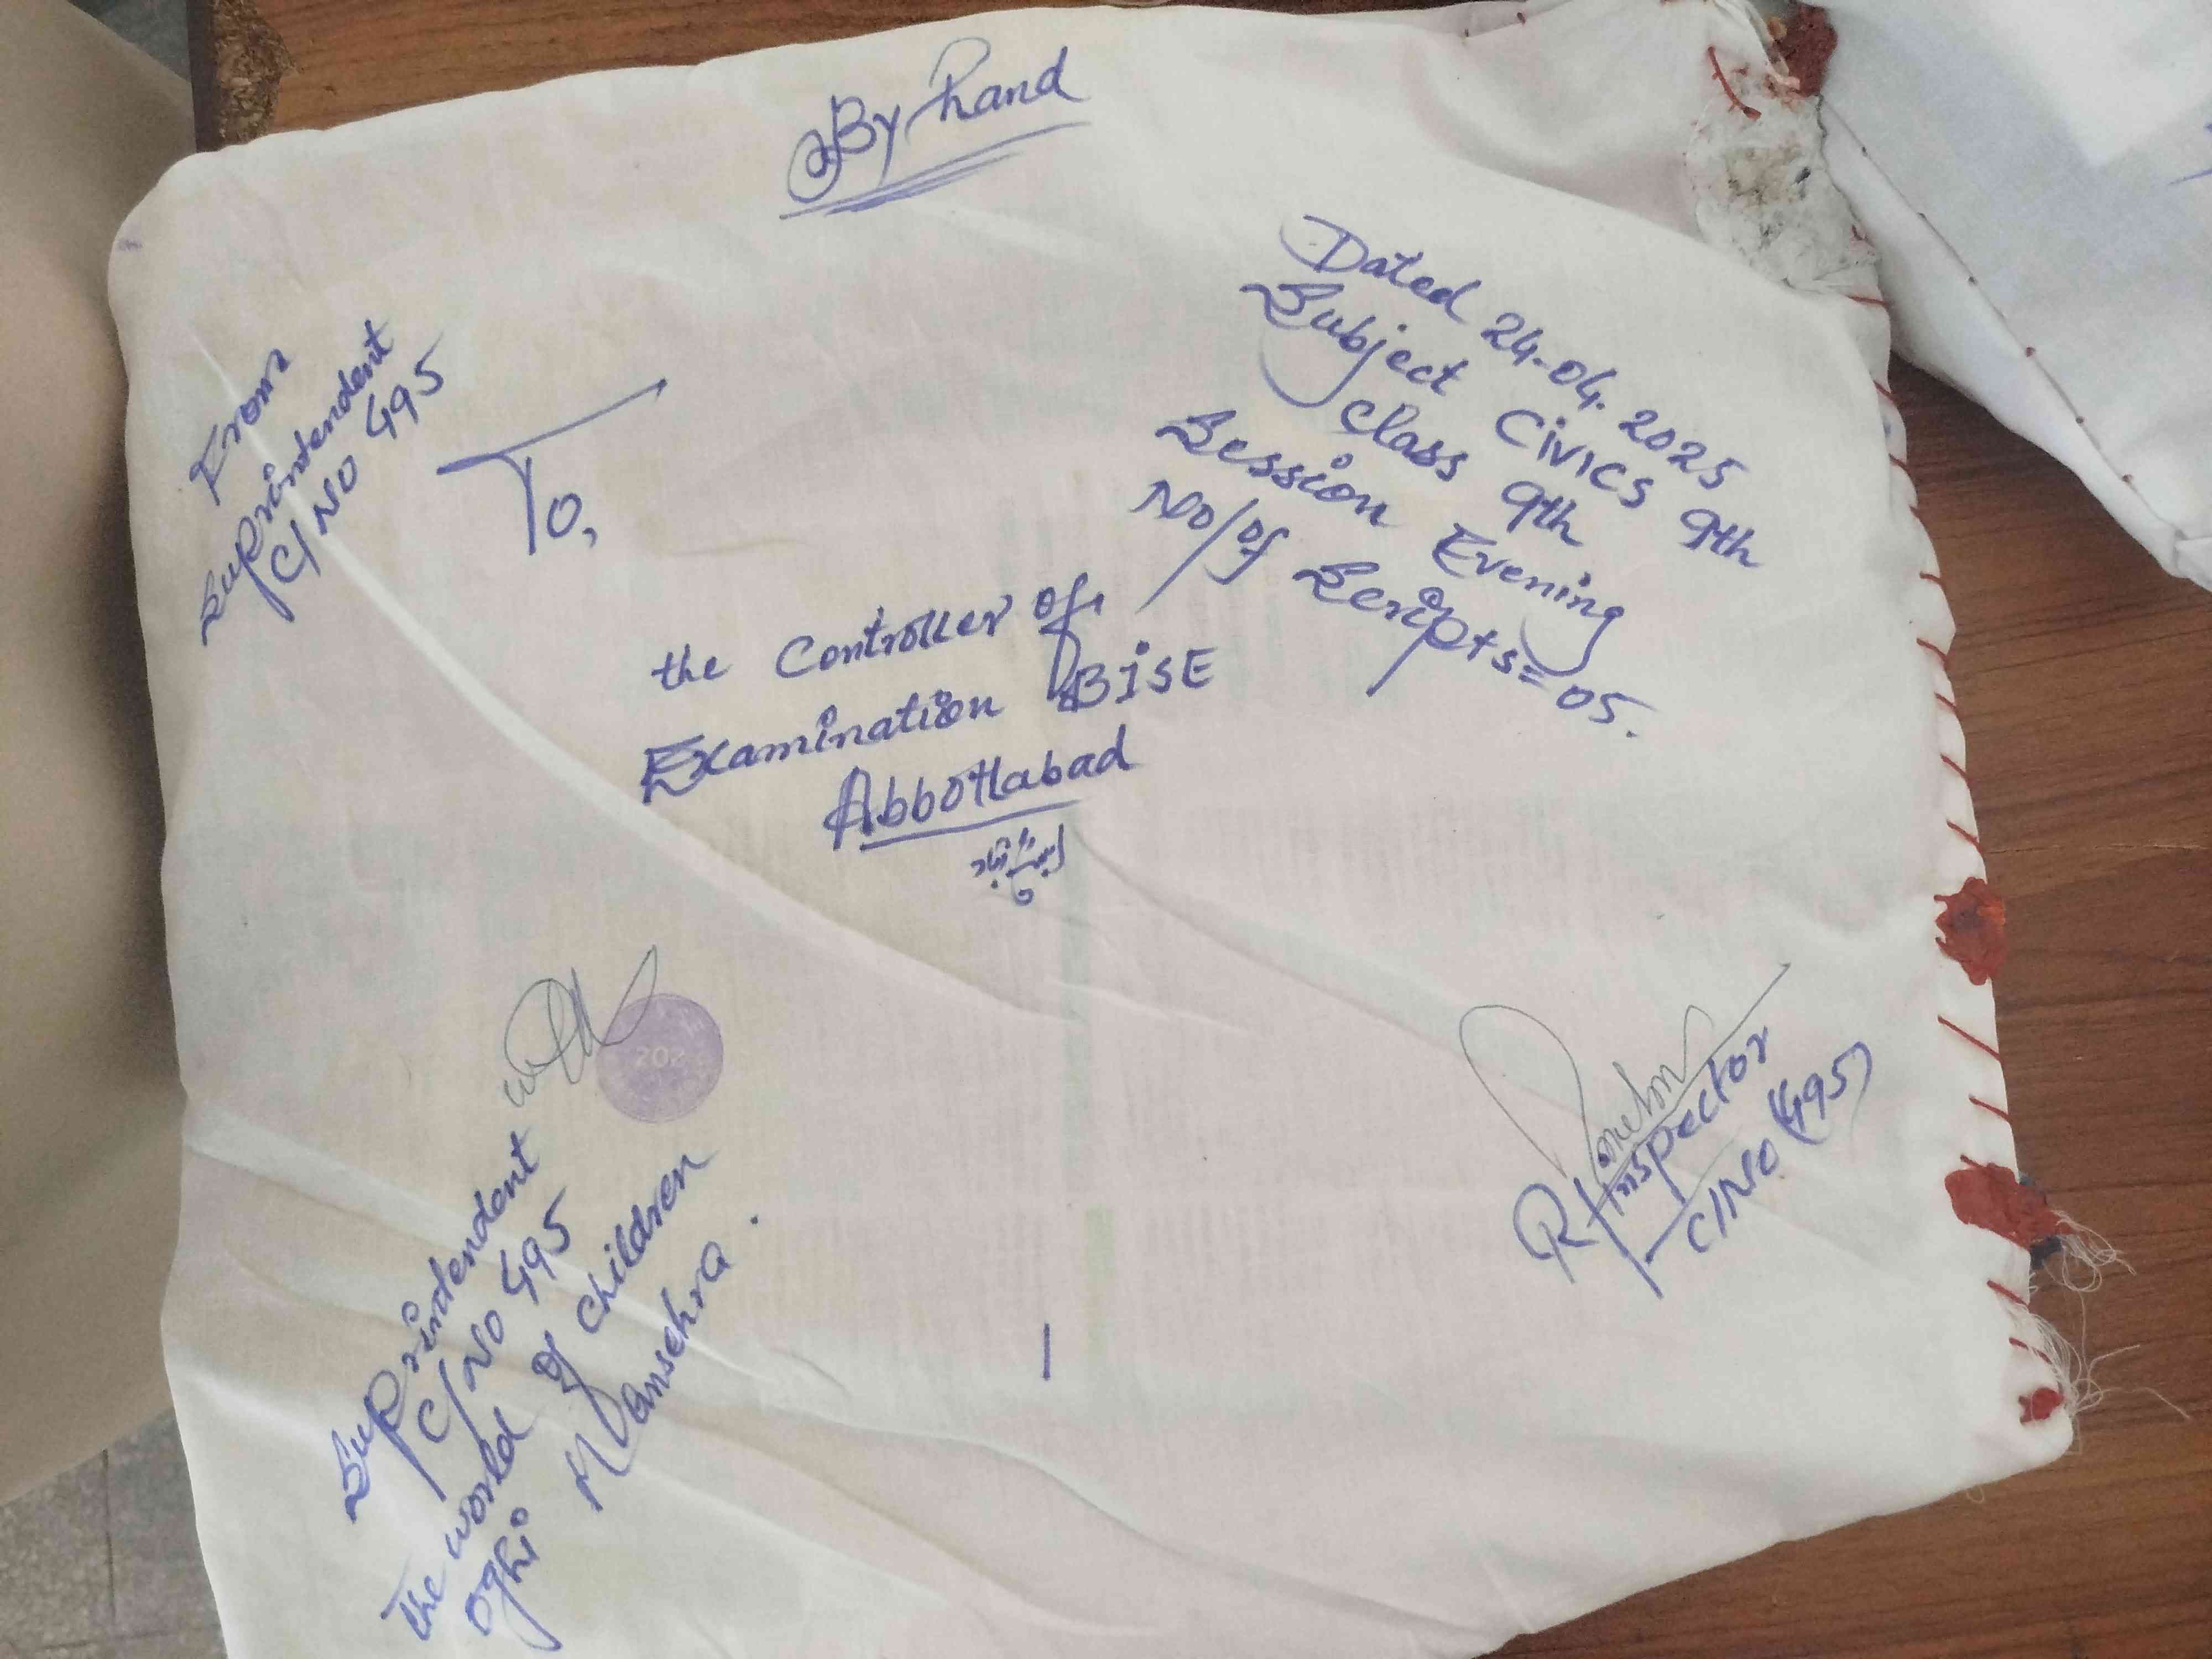 By hand
From
Suprintendent
C/NO 495
To,
the Controller of
Examination BISE
Abbottabad
Dated 24-04.2025
Subject Civics 9th
Class 9th
Session Evening
No/of Scripts= 05.
202
Suprintendent
C/NO 495
The world of children
oghi Mansehra.
R/Inspector
C/No (495)